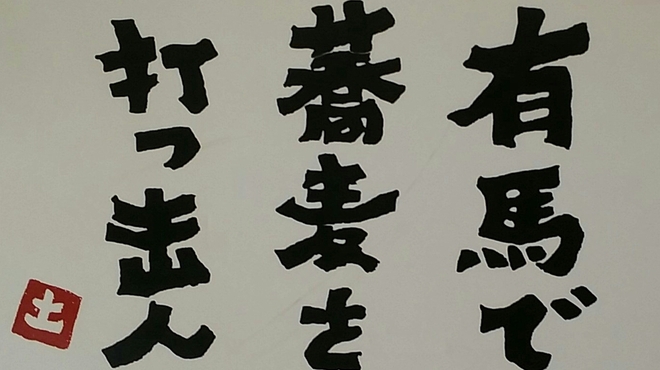 有馬で
蕎麦を
打つ土山人
土